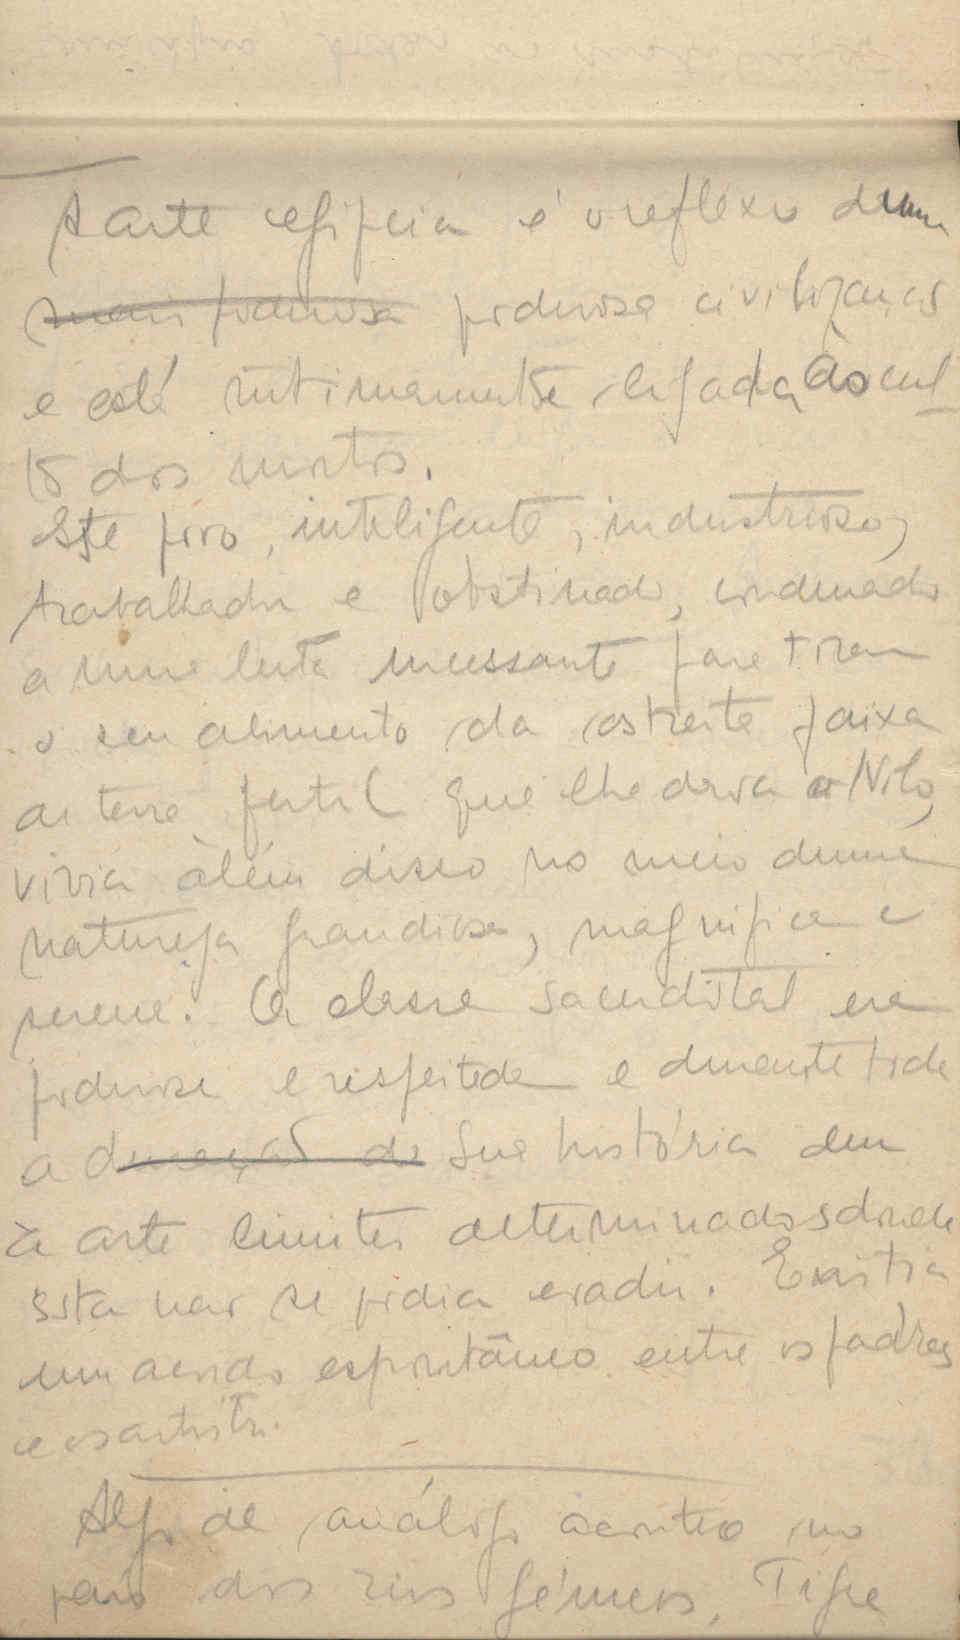 A arte egípcia é o reflexo duma
mais poderosa poderosa civilização
e está intimamente ligada ao cul
to dos mortos.
Este povo, inteligente, industrioso,
trabalhador e obstinado, condenado
a uma luta incessante para tirar
o seu alimento da estreita faixa
de terra fertil que lhe dava o Nilo,
vivia àlém disso no meio duma
natureza grandiosa, magnifica e
serena. A classe sacerdotal era
poderosa e respeitada e durante toda
a duração da sua história deu
à arte limites determinados donde
esta não se podia evadir. Existia
um acordo espontâneo entre os padres
e os artistas.
Algo de análogo acontece no
país dos rios gémeos, Tigre